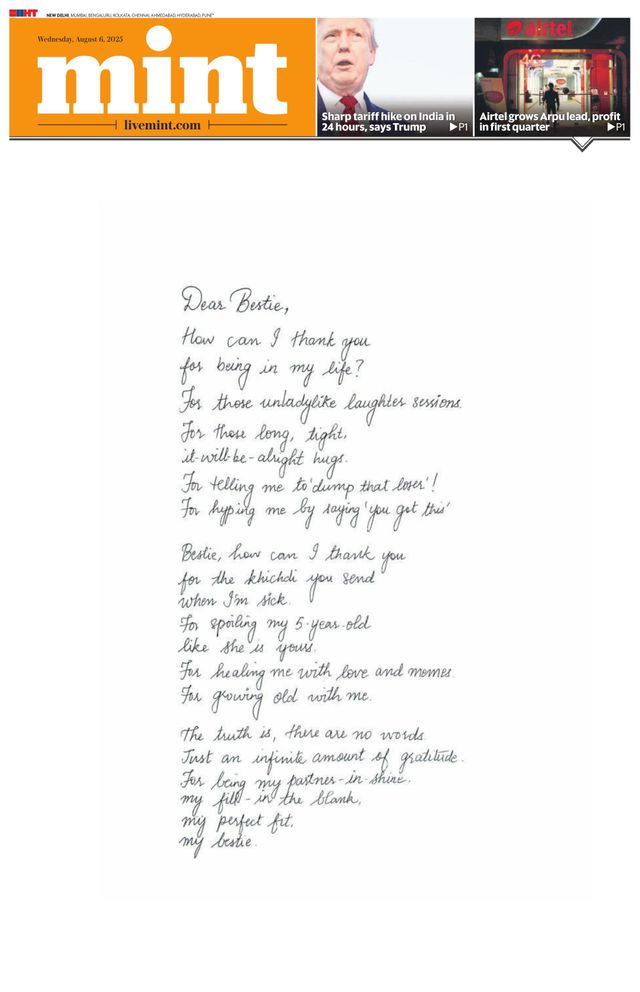 HT NEW DELHI, MUMBAI, BENGALURU, KOLKATA, CHENNAI, AHMEDABAD, HYDERABAD, PUNE*
Wednesday, August 6, 2025
mint
livemint.com
Sharp tariff hike on India in
24 hours, says Trump ▶P1
airtel
4G
Airtel grows Arpu lead, profit
in first quarter ▶P1
Dear Bestie,
How can I thank you
for being in my life?
For those unladylike laughter sessions.
For those long, tight,
it-will-be-alright hugs.
For telling me to 'dump that loser'!
For hyping me by saying 'you got this'
Bestie, how can I thank you
for the khichdi you send
when I'm sick.
For spoiling my 5-year-old
like she is yours.
For healing me with love and memes.
For growing old with me.
The truth is, there are no words.
Just an infinite amount of gratitude.
For being my partner-in-shine,
my fill-in the blank,
my perfect fit,
my bestie.